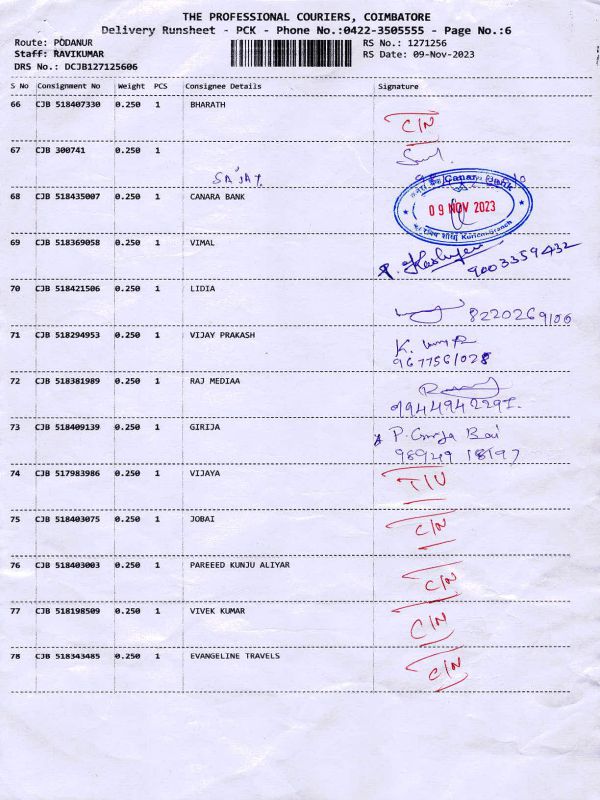 THE PROFESSIONAL COURIERS, COIMBATORE
Delivery Runsheet - PCK - Phone No.:0422-3505555 - Page No.:6
Route: PODANUR RS No.: 1271256
Staff: RAVIKUMAR RS Date: 09-Nov-2023
DRS No.: DCJB127125606
S No Consignment No Weight PCS Consignee Details Signature
66 CJB 518407330 0.250 1 BHARATH
C/N
67 CJB 300741 0.250 1
SAJAY
68 CJB 518435007 0.250 1 CANARA BANK
Canara Bank
09 NOV 2023
Branch
69 CJB 518369058 0.250 1 VIMAL
9003359432
70 CJB 518421506 0.250 1 LIDIA
8220269106
71 CJB 518294953 0.250 1 VIJAY PRAKASH
K.
9677561028
72 CJB 518381989 0.250 1 RAJ MEDIAA
9944942297.
73 CJB 518409139 0.250 1 GIRIJA
P. Girija Bai
98949 18197
74 CJB 517983986 0.250 1 VIJAYA
T/U
75 CJB 518403075 0.250 1 JOBAI
C/N
76 CJB 518403003 0.250 1 PAREEED KUNJU ALIYAR
C/N
77 CJB 518198509 0.250 1 VIVEK KUMAR
C/N
78 CJB 518343485 0.250 1 EVANGELINE TRAVELS
C/N